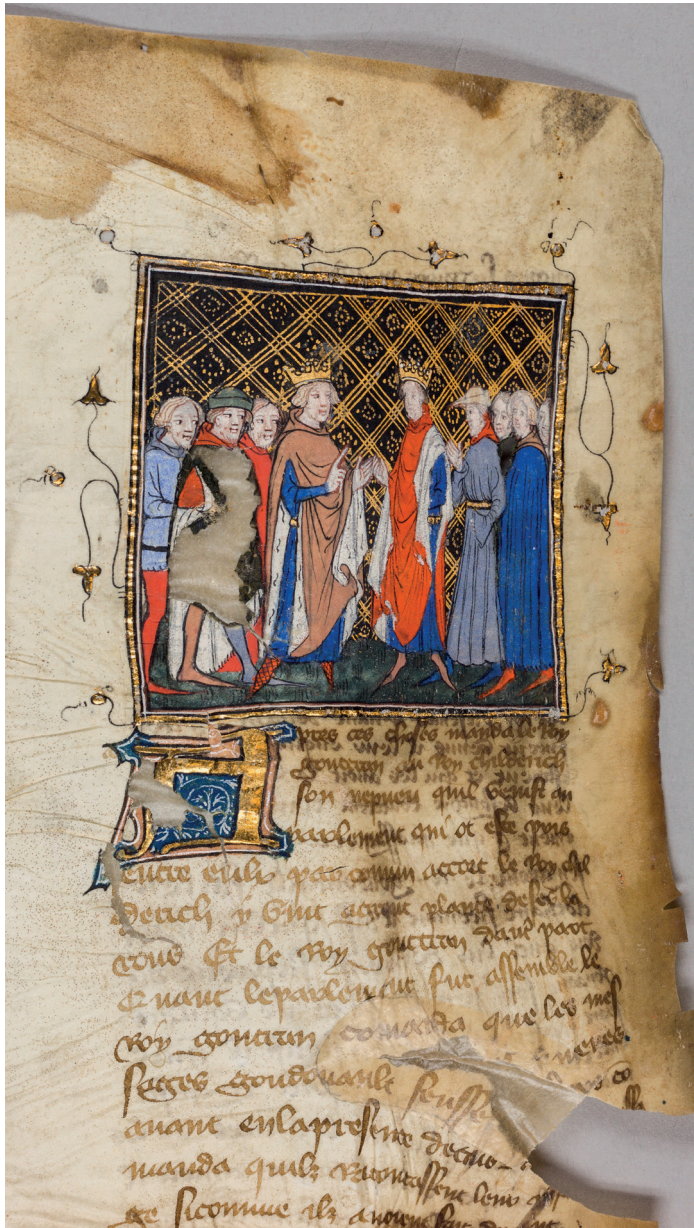 Apres ces choses manda le Roy
gontran au Roy childerich
son nepueu quil venist au
parlement qui ot este pris
entre eulx par comun accort le Roy chil
derich y vint a grant plante de ses ba
rons Et le Roy gontran dautre part
Quant leparlement fut assemble le
roy gontran comanda que les mes
sages gondouault feussent
auant enlapresence
manda quilz racontassent leur
ge sicomme ilz auoient fait